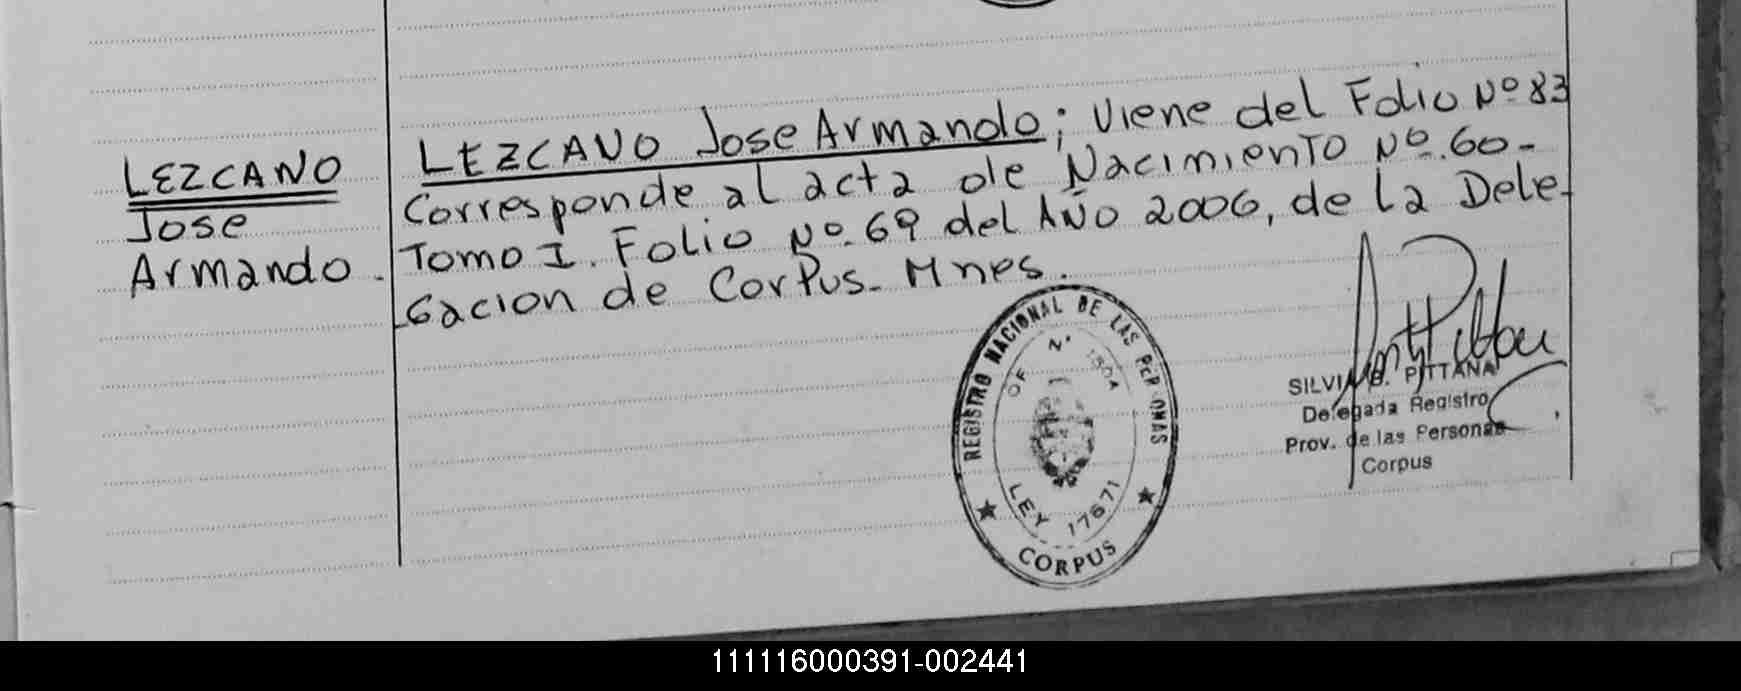 LEZCANO
Jose
Armando.
LEZCANO Jose Armando; Viene del Folio Nº 83
Corresponde al acta de Nacimiento Nº.60-
Tomo I. Folio Nº.69 del Año 2006, de la Dele-
gacion de Corpus- Mnes.
REGISTRO NACIONAL DE LAS PERSONAS
OF Nº
LEY 17671
CORPUS
SILVIA B. PITTANA
Delegada Registro
Prov. de las Personas
Corpus
111116000391-002441